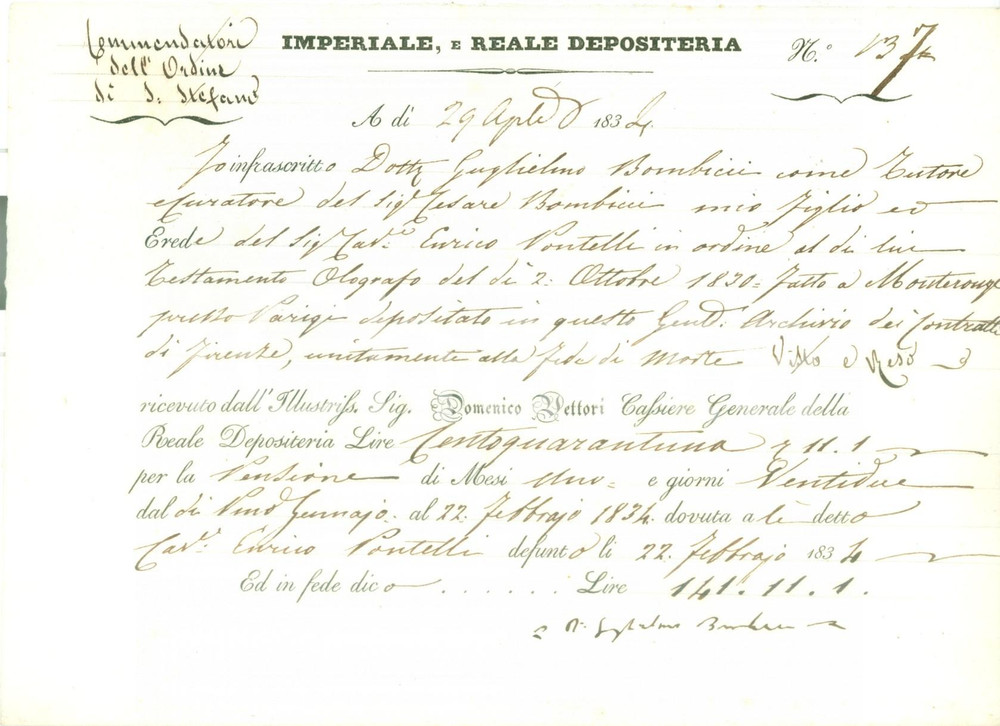 Commendatore
dell' Ordine
di S: Stefano
IMPERIALE, E REALE DEPOSITERIA
N.º 137
A dì 29 Aple 1834.
Io infrascritto Dottr Guglielmo Bombicci come Tutore
e Curatore del Sigr Cesare Bombicci mio Figlio ed
Erede del Sigr Cavre Enrico Pontelli in ordine al di lui
Testamento Olografo del dì 2: Ottobre 1830 = fatto a Monterouge
presso Parigi depositato in questo Genle Archivio dei Contratti
di Firenze, unitamente alla fede di Morte Visto e Reso
ricevuto dall' Illustriss. Sig. Domenico Vettori Cassiere Generale della
Reale Depositeria Lire Centoquarantuna 11. 1
per la Pensione di Mesi Uno = e giorni Ventidue
dal dì Primo Gennajo. al 22. Febbrajo 1834. dovuta a le detto
Cavr. Enrico Pontelli defunto li 22. Febbrajo 1834
Ed in fede dico . . . . . . Lire 141. 11. 1.
Dr Guglielmo Bombicci